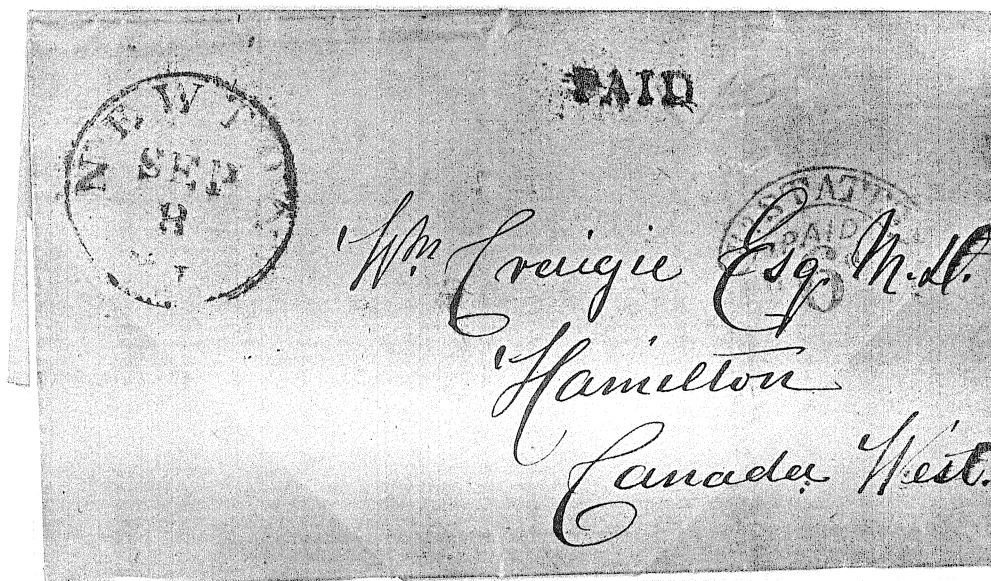 PAID
NEWTON
SEP
8
PAID
Wm Craigie Esq. M.D.
Hamilton
Canada West.